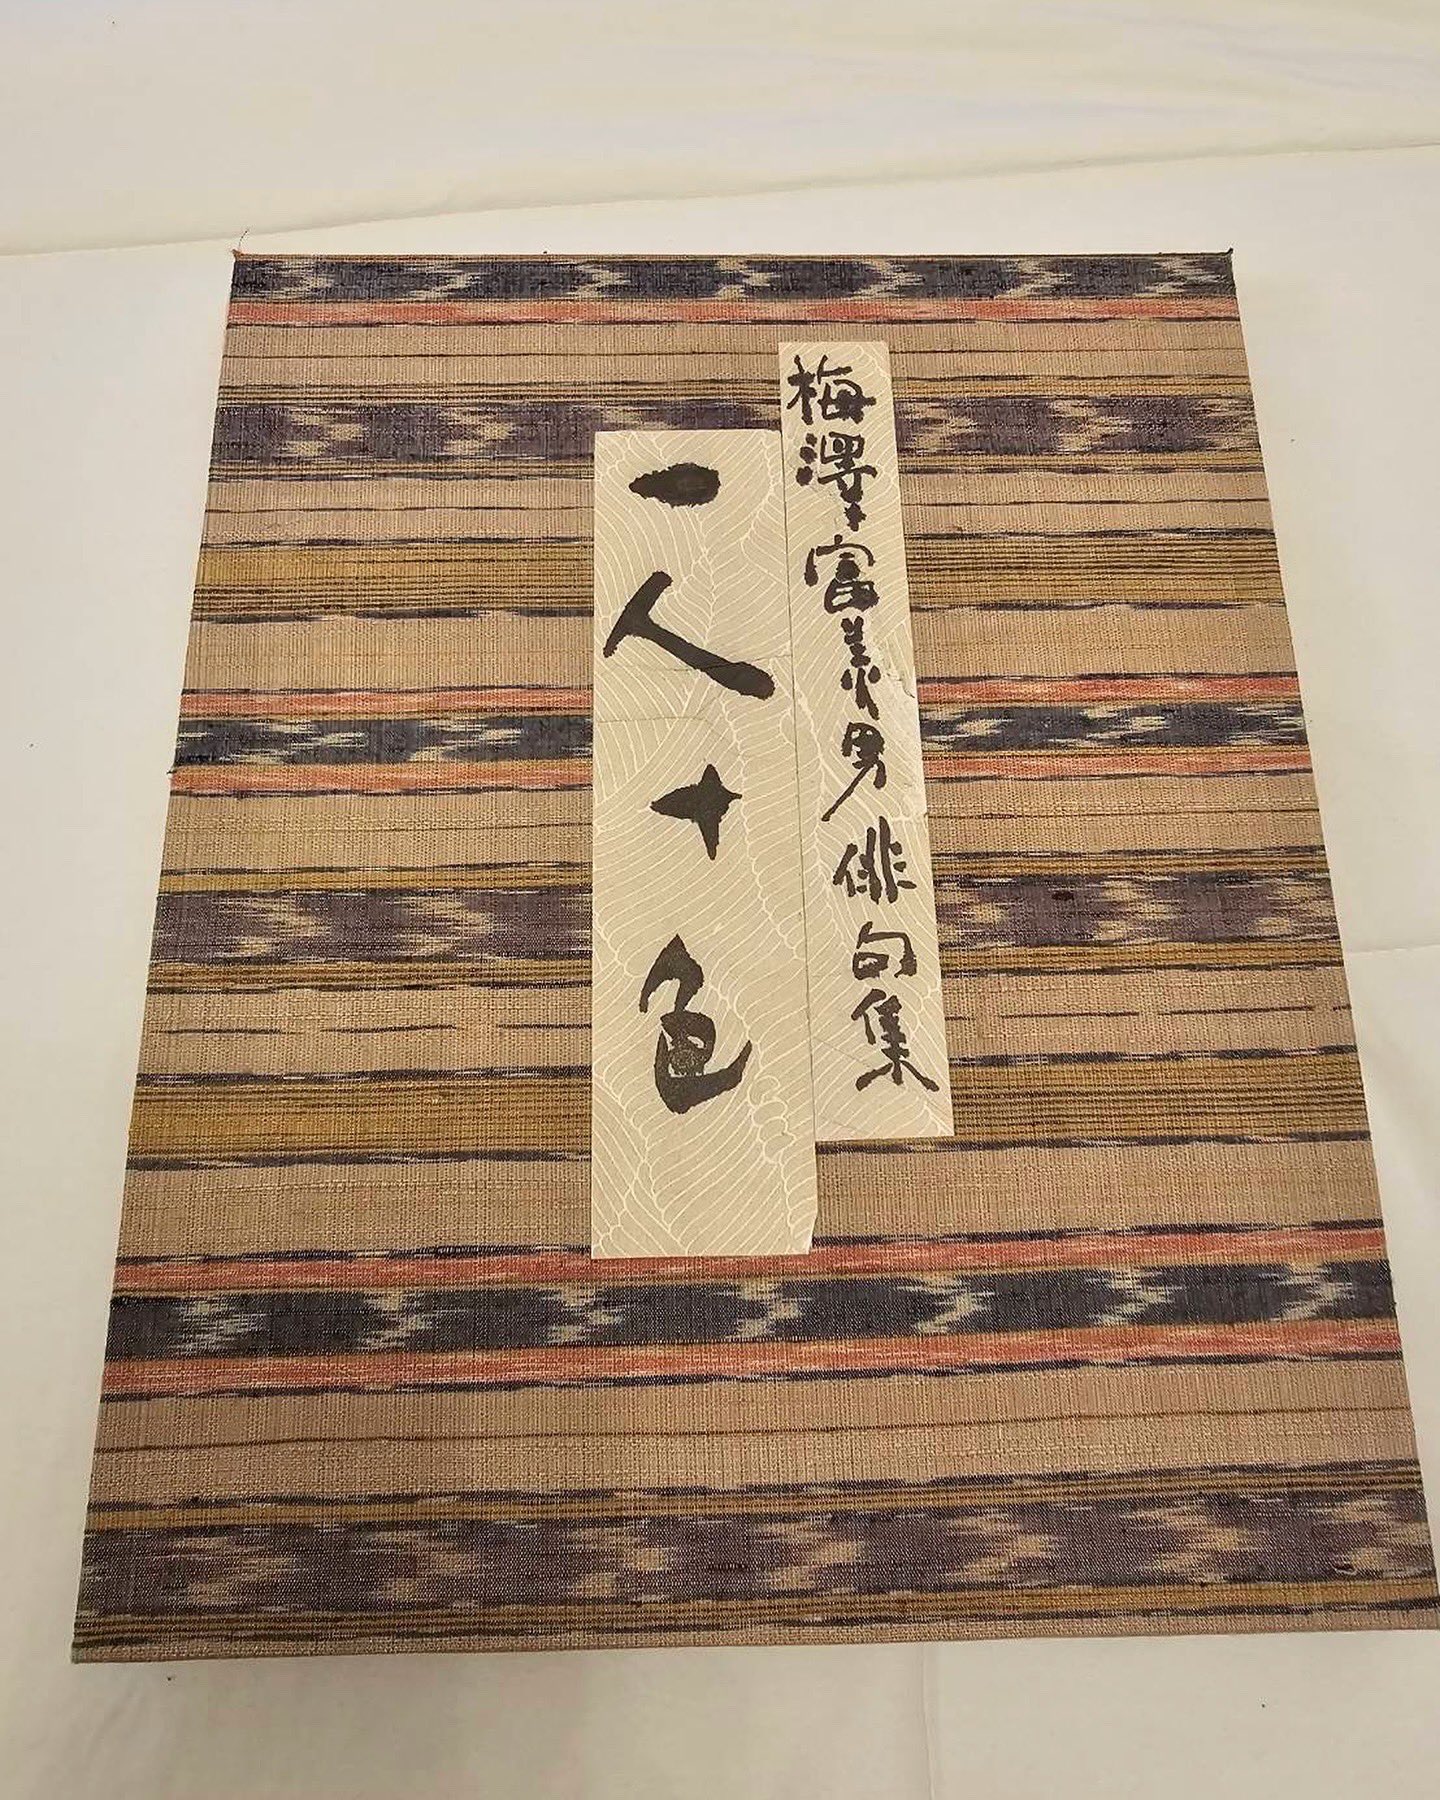 梅澤富美男俳句集
一人十色